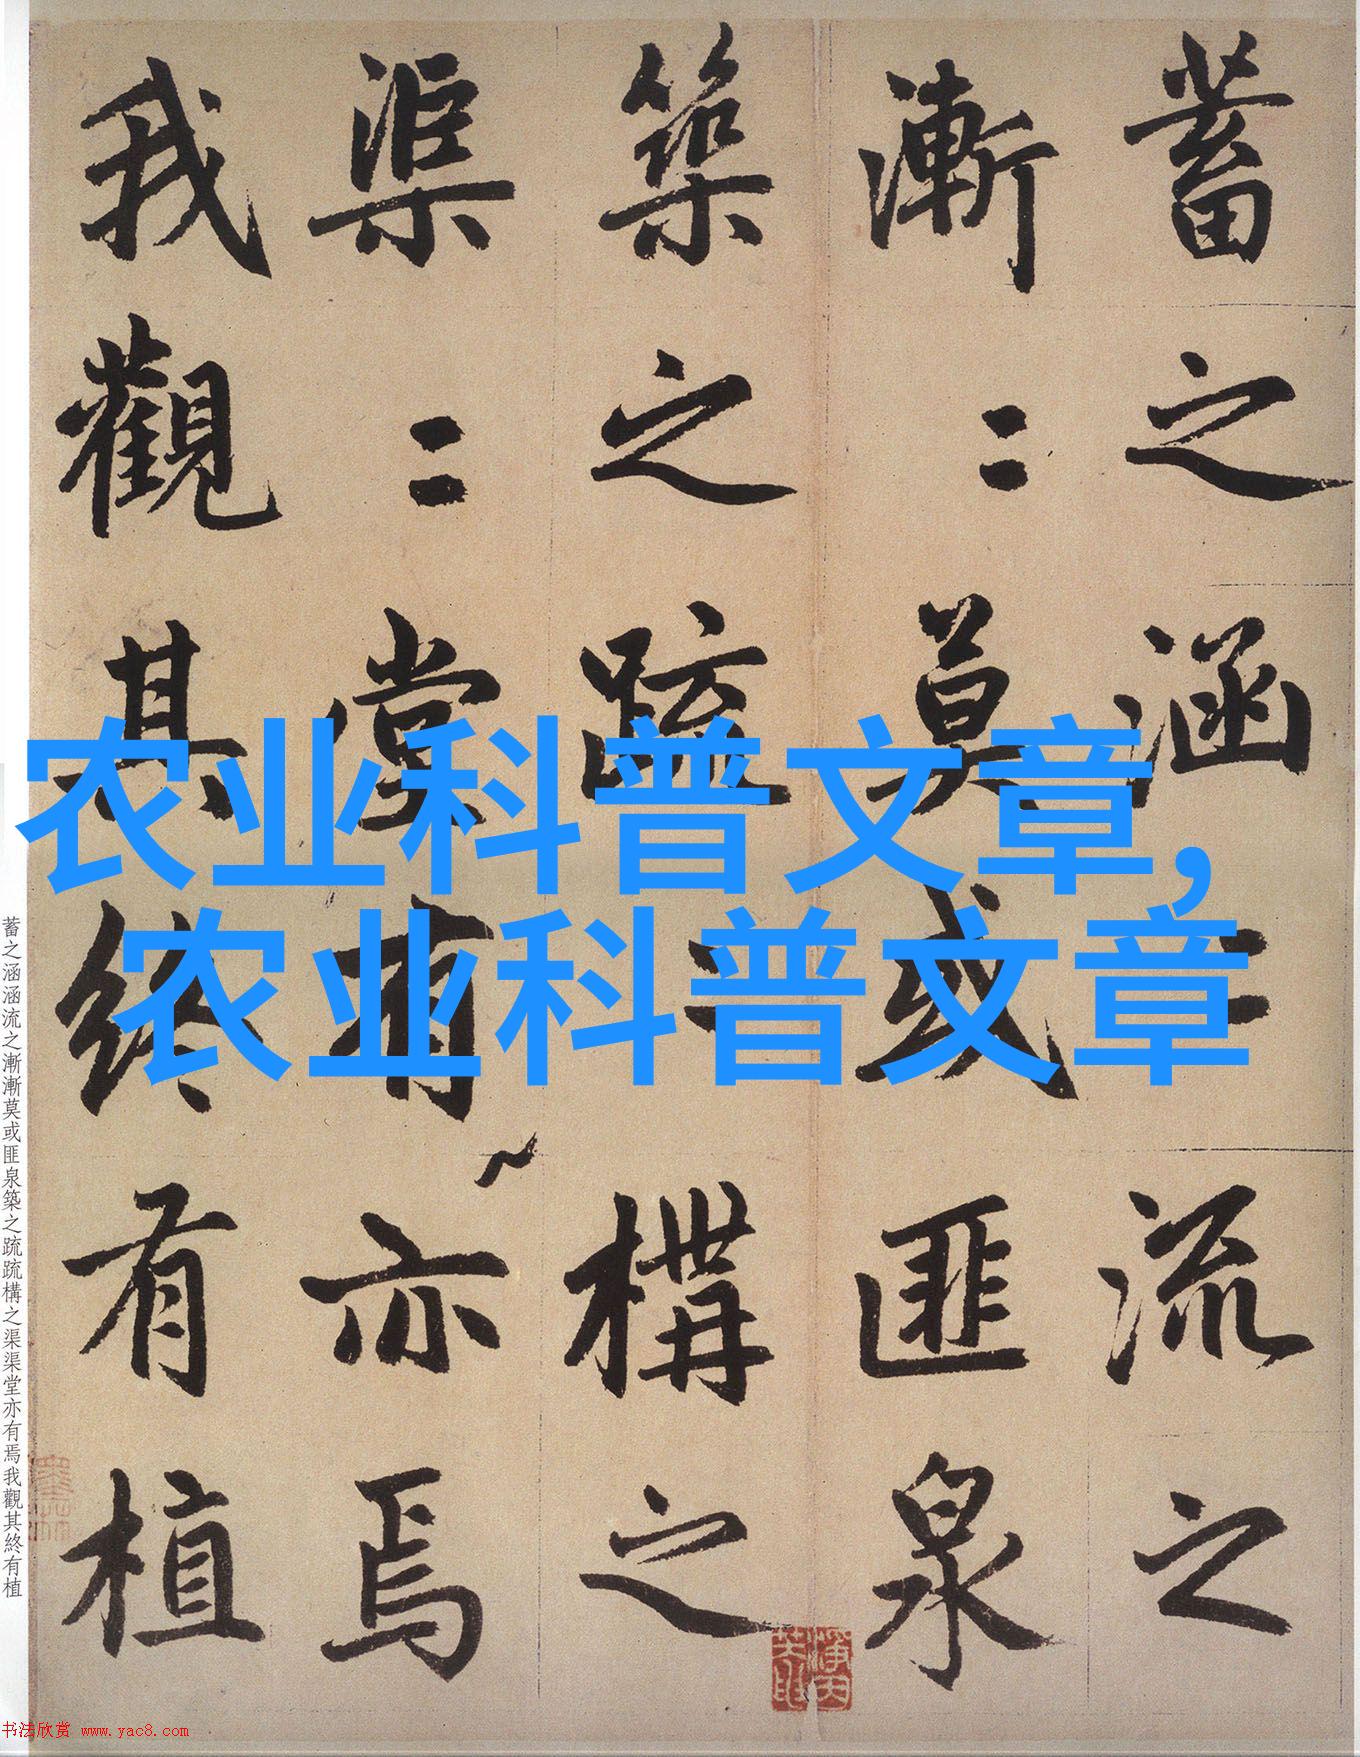 蓄之涵〻流之
漸〻莫或匪泉
築之疏〻構之
渠〻堂有亦焉
我觀其終有植
农业科普文章,
农业科普文章
蓄之涵涵流之漸漸莫或匪泉築之疏疏構之渠渠堂亦有焉我觀其終有植
书法欣赏 www.yac8.com